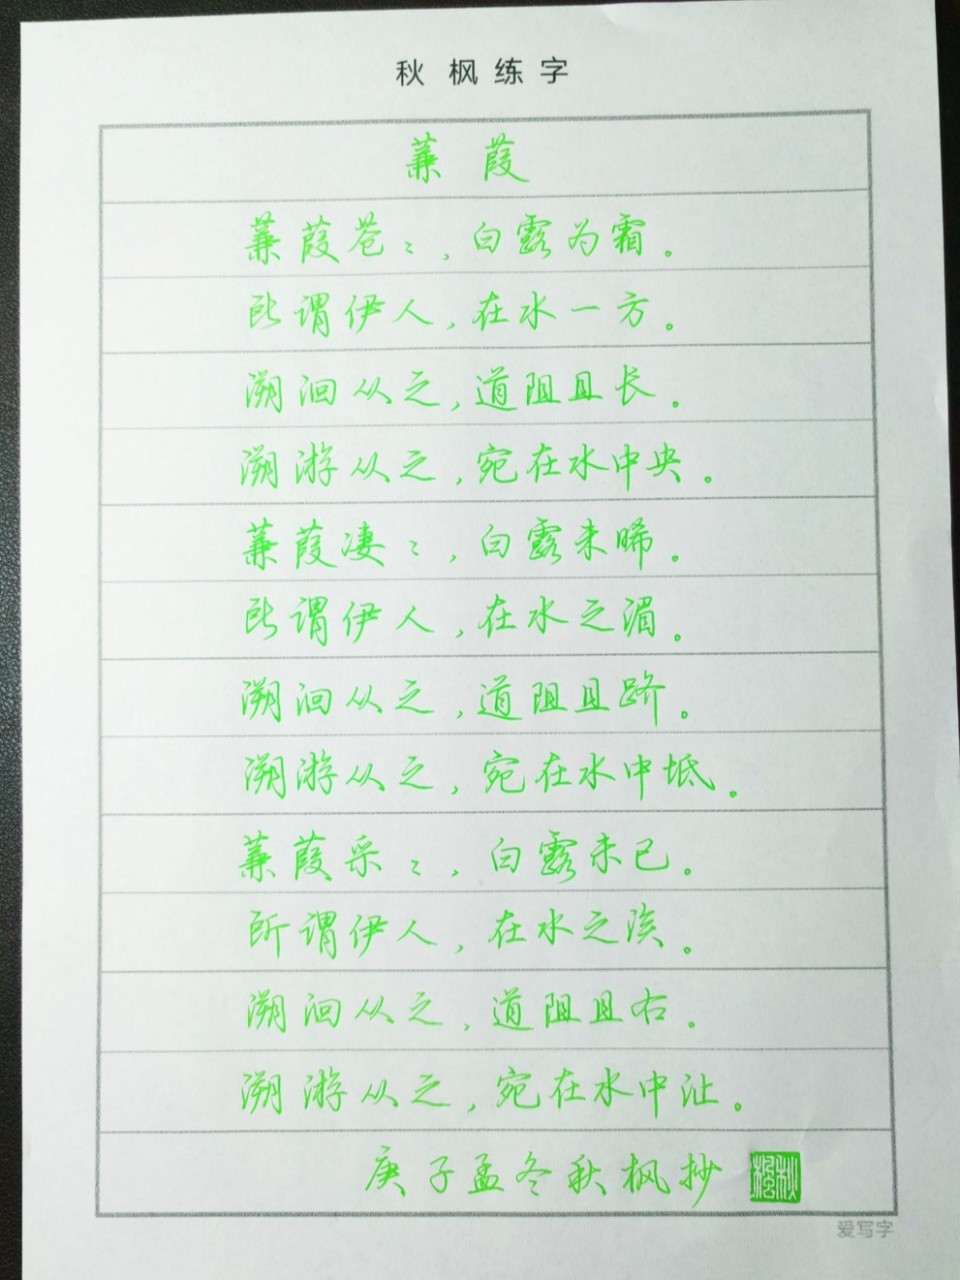 秋枫练字
蒹葭
蒹葭苍〻，白露为霜。
所谓伊人，在水一方。
溯洄从之，道阻且长。
溯游从之，宛在水中央。
蒹葭凄〻，白露未晞。
所谓伊人，在水之湄。
溯洄从之，道阻且跻。
溯游从之，宛在水中坻。
蒹葭采〻，白露未已。
所谓伊人，在水之涘。
溯洄从之，道阻且右。
溯游从之，宛在水中沚。
庚子孟冬秋枫抄
秋枫
爱写字